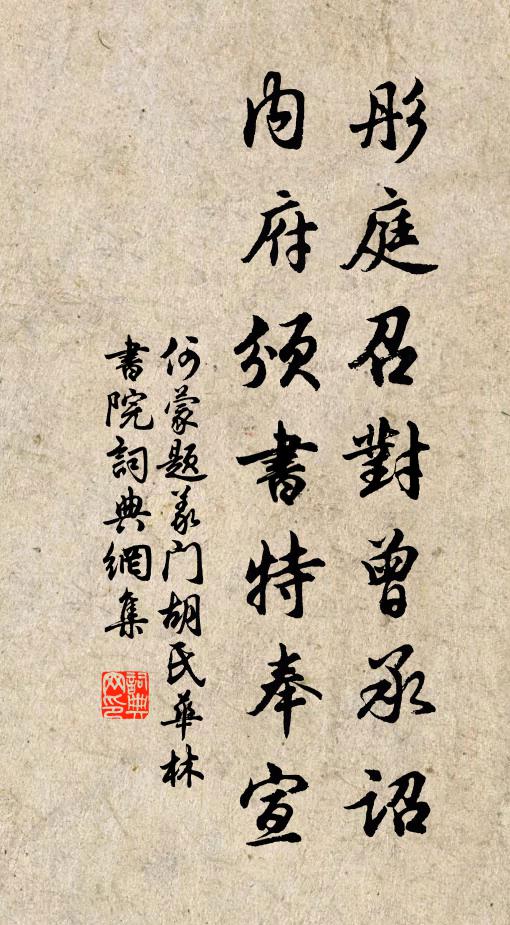 彤庭召對曾承詔
内府頒書特奉宣
何蒙題義门胡氏華林
書院詞典網集
詞典网印